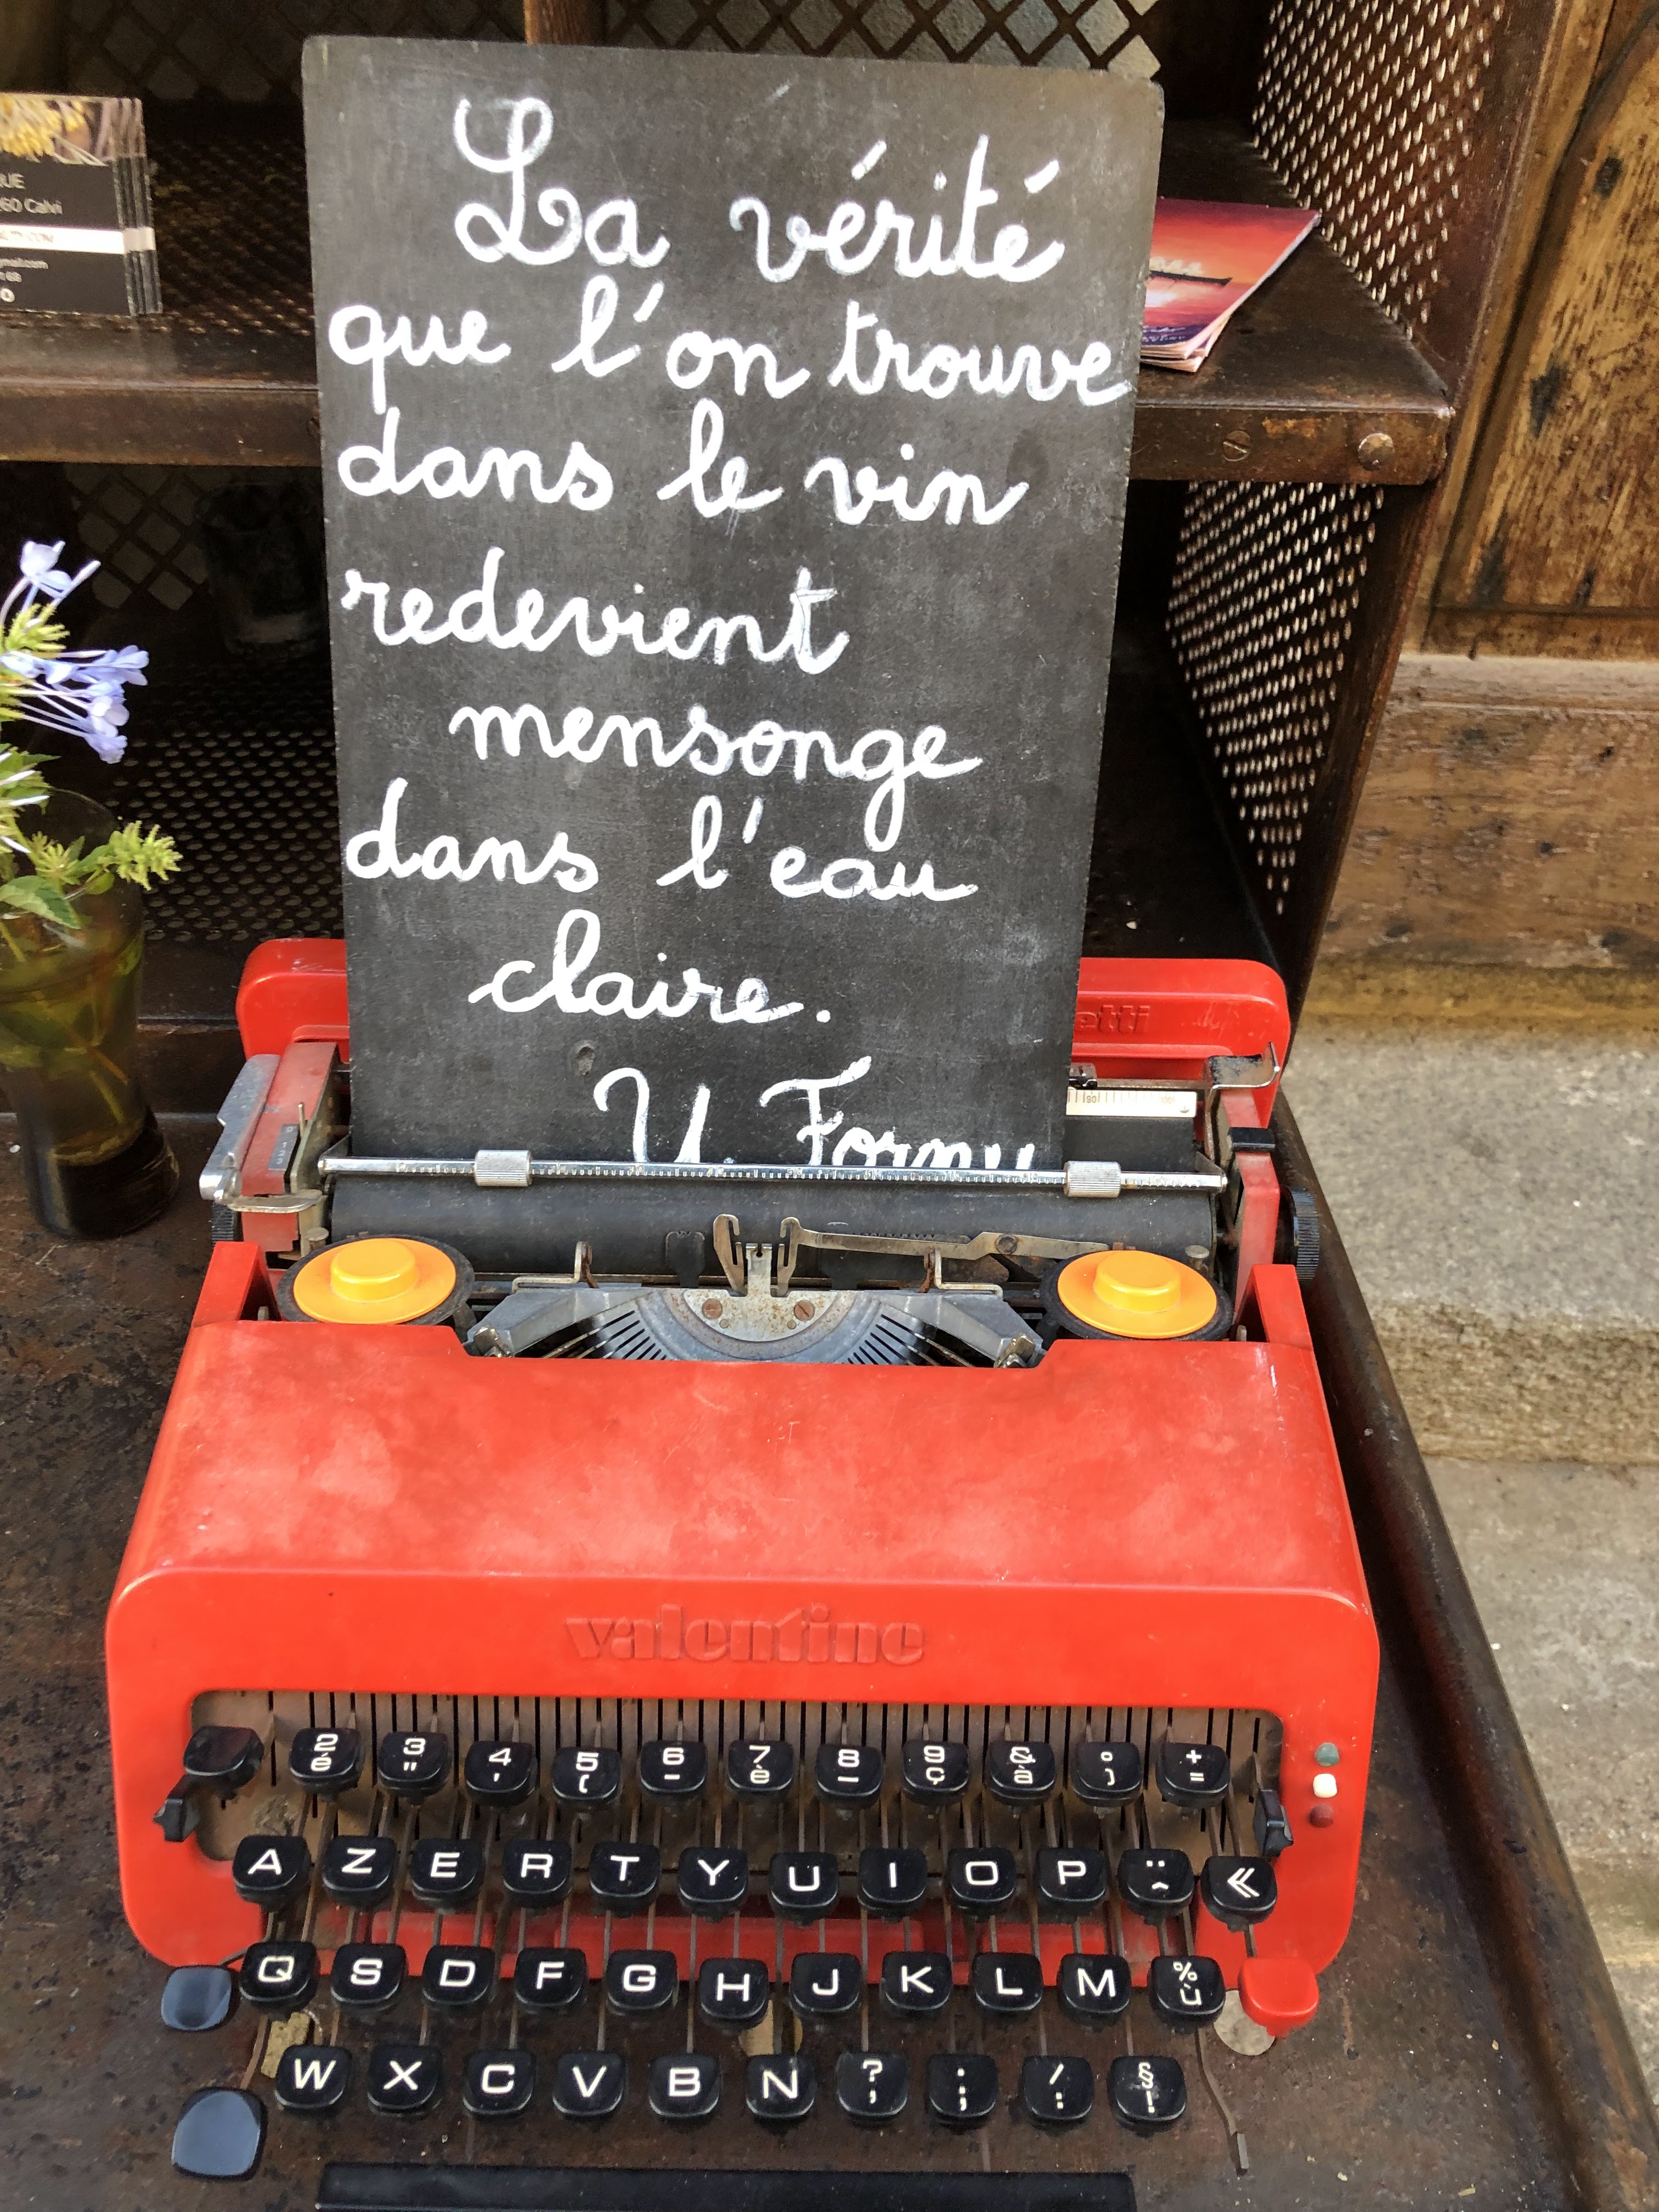 La vérité
que l'on trouve
dans le vin
redevient
mensonge
dans l'eau
claire.
260 Calvi
etti
90 100
valentine
2 3 4 5 6 7 8 9 & ° +
é " ' ( - è _ ç à ) =
A Z E R T Y U I O P ¨ ^ «
Q S D F G H J K L M % ù
W X C V B N ? ; / §
, : !